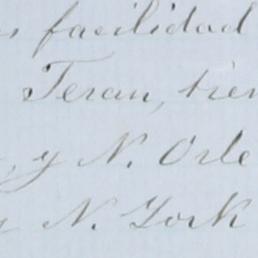 s facilidad
Teran, tien
, y N. Orle
y N. York